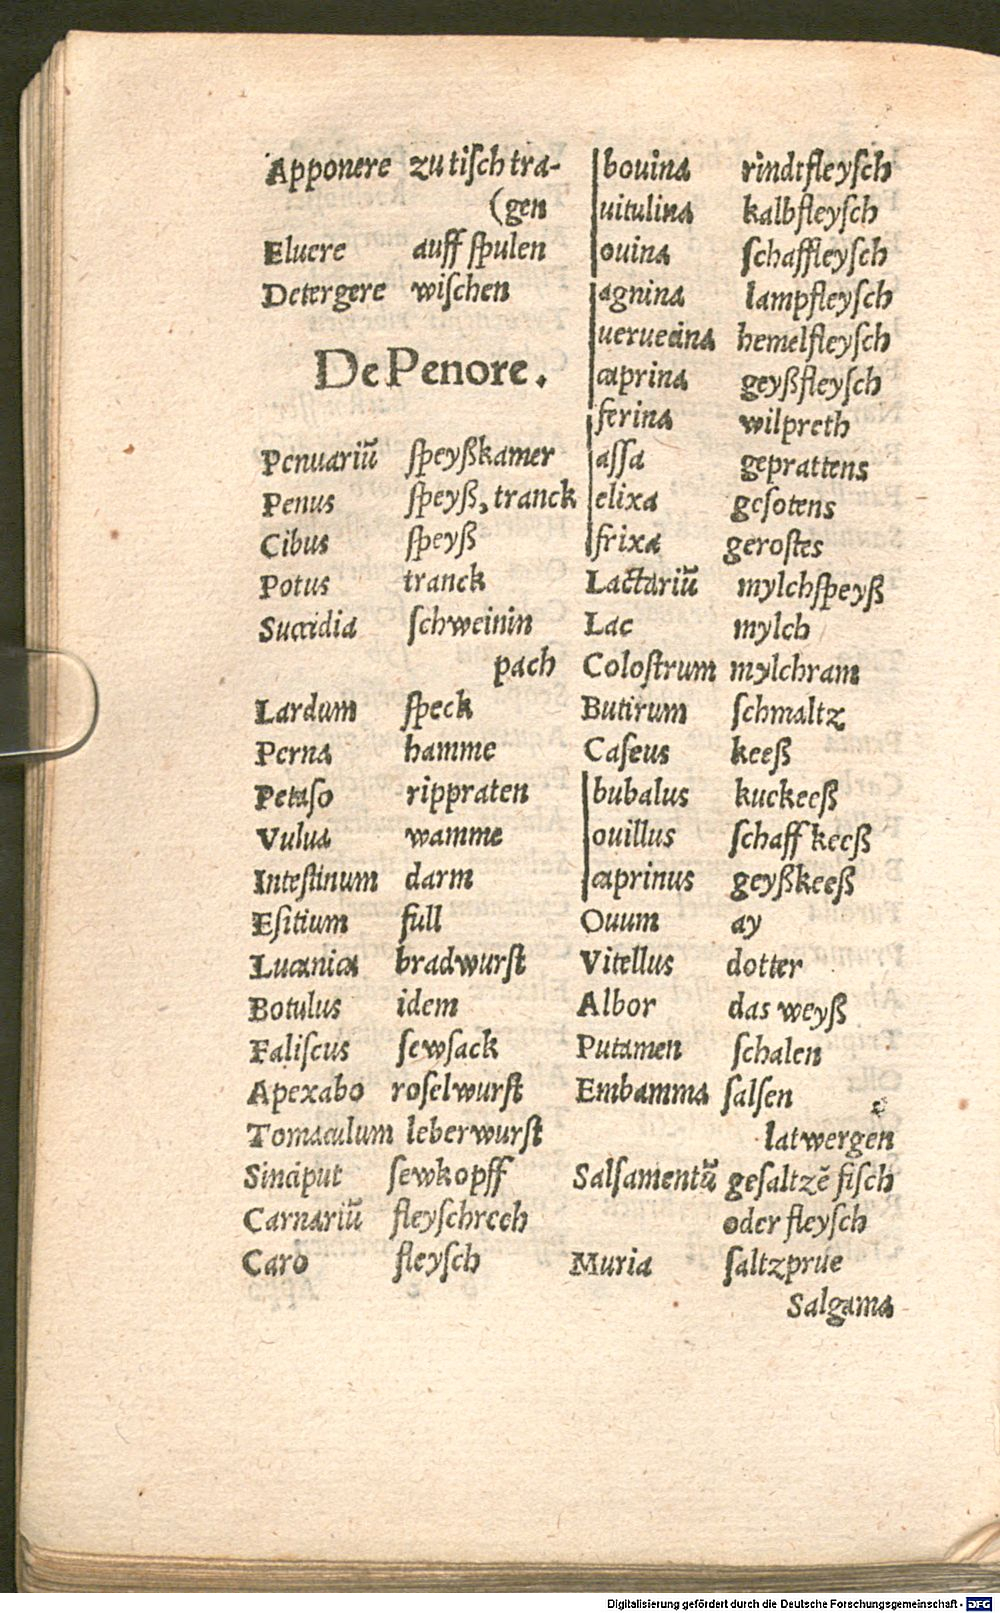 Apponere zu tiſch tra-
(gen
Eluere auff ſpulen
Detergere wiſchen
De Penore.
Penuariũ ſpeyßkamer
Penus ſpeyß, tranck
Cibus ſpeyß
Potus tranck
Succidia ſchweinin
pach
Lardum ſpeck
Perna hamme
Petaſo rippraten
Vulua wamme
Inteſtinum darm
Eſitium full
Lucanica bradwurſt
Botulus idem
Faliſcus ſewſack
Apexabo roſelwurſt
Tomaculum leberwurſt
Sinciput ſewkopff
Carnariũ fleyſchrech
Caro fleyſch
bouina rindtfleyſch
uitulina kalbfleyſch
ouina ſchaffleyſch
agnina lampfleyſch
ueruecina hemelfleyſch
caprina geyßfleyſch
ferina wilpreth
aſſa geprattens
elixa geſotens
frixa geroſtes
Lactariũ mylchſpeyß
Lac mylch
Coloſtrum mylchram
Butirum ſchmaltz
Caſeus keeß
bubalus kuckeeß
ouillus ſchaff keeß
caprinus geyßkeeß
Ouum ay
Vitellus dotter
Albor das weyß
Putamen ſchalen
Embamma ſalſen
latwergen
Salſamentũ geſaltzẽ fiſch
oder fleyſch
Muria ſaltzprue
Salgama
Digitalisierung gefördert durch die Deutsche Forschungsgemeinschaft - DFG